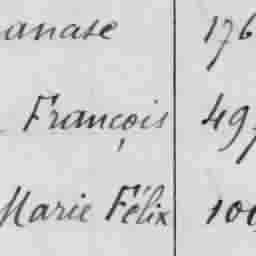 anase 176
François 497
Marie Félix 100